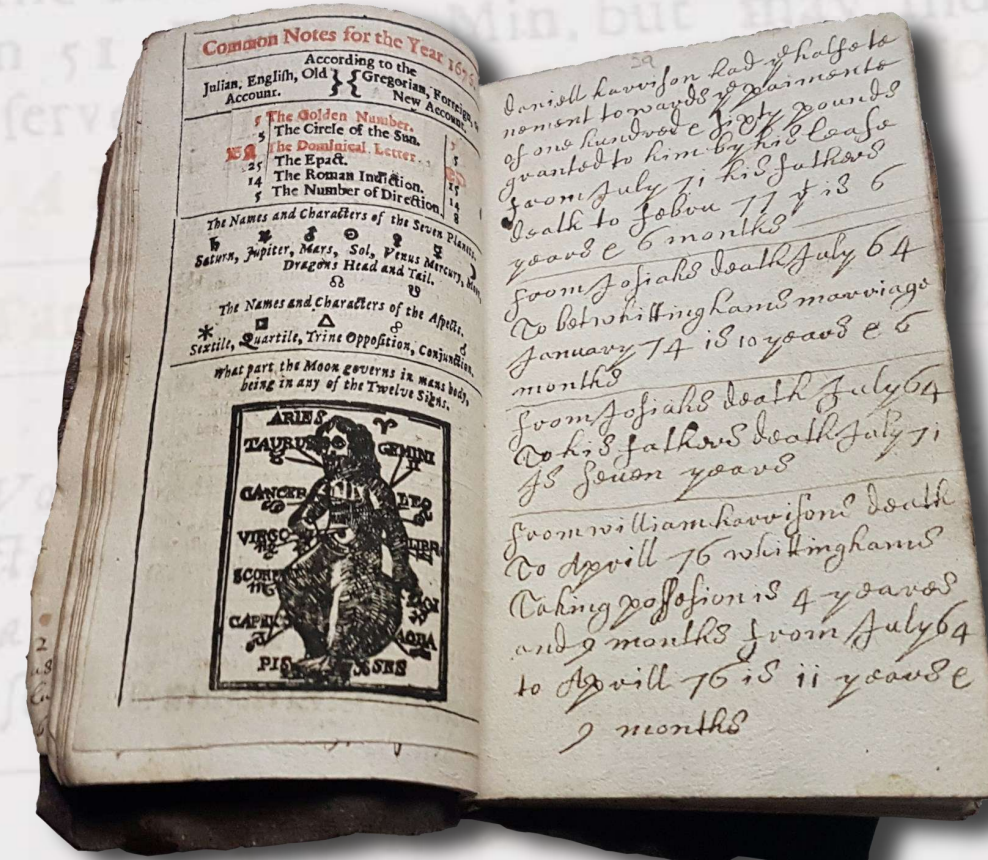 Common Notes for the Year 1676
According to the
Julian, Engliſh, Old } { Gregorian, Forreign,
Account. New Account.
5 The Golden Number. 5
5 The Circle of the Sun. 5
BA The Dominical Letter.
25 The Epact. 15
14 The Roman Indiction. 14
5 The Number of Direction. 8
The Names and Characters of the Seven Planets.
♄ ♃ ♂ ☉ ♀ ☿ ☽
Saturn, Jupiter, Mars, Sol, Venus Mercury, Moon.
Dragons Head and Tail.
☊ ☋
The Names and Characters of the Aſpects.
⚹ □ △ ☍ ☌
Sextile, Quartile, Trine Oppoſition, Conjunction.
What part the Moon governs in mans body,
being in any of the Twelve Signs.
ARIES ♈
TAURUS GEMINI
♉ ♊
CANCER LEO
VIRGO LIBR
SCORP
CAPRIC AQUA
PIS SES
39
daniell harriſon had ye halfe te
nement towards ye paimente
of one hundred & ſixty pounds
granted to him by his leaſe
from July 71 his fathers
death to febru 77 yt is 6
years & 6 months
from Joſiahs death July 64
To bet whittinghams marriage
January 74 is 10 years & 6
months
from Joſiahs death July 64
To his fathers death July 71
is ſeven years
from william harriſons death
To Aprill 76 whittinghams
Taking poſſeſion is 4 yeares
and 9 months from July 64
to Aprill 76 is 11 years &
9 months